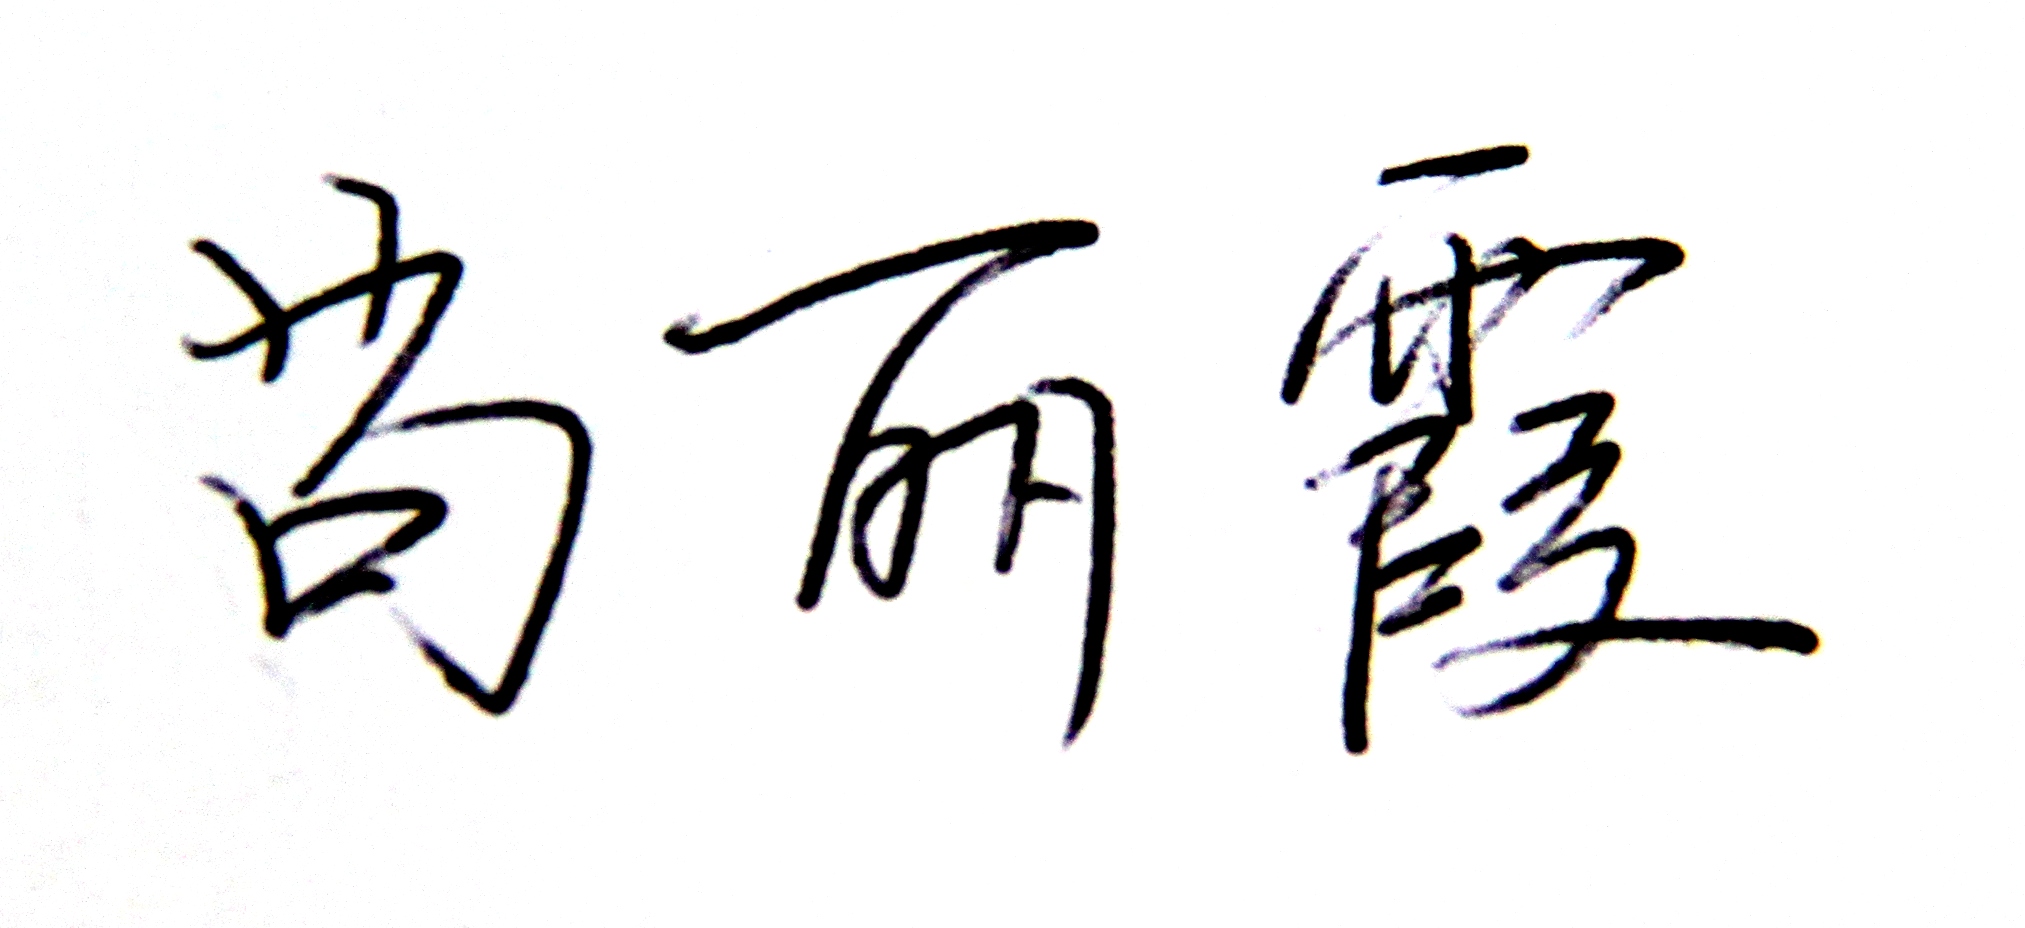 苟丽霞